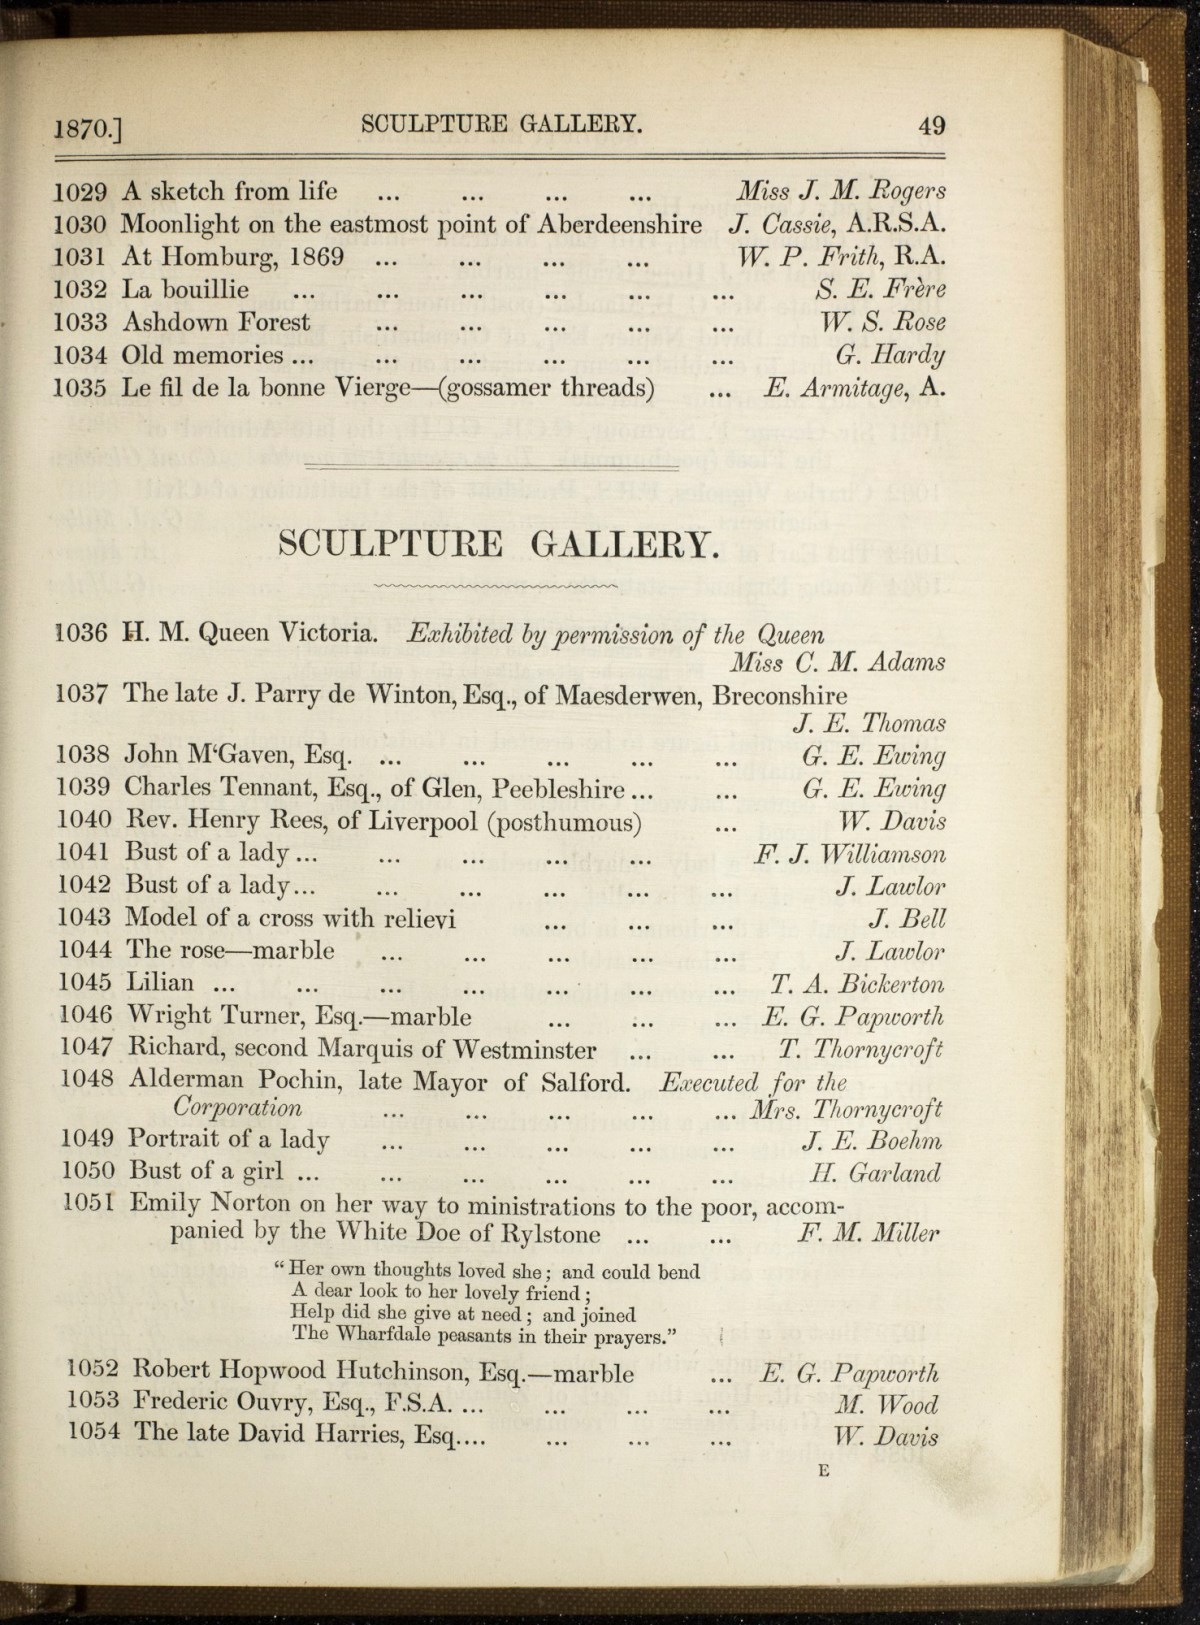 1870.] SCULPTURE GALLERY. 49
1029 A sketch from life ... ... ... ... Miss J. M. Rogers
1030 Moonlight on the eastmost point of Aberdeenshire J. Cassie, A.R.S.A.
1031 At Homburg, 1869 ... ... ... ... W. P. Frith, R.A.
1032 La bouillie ... ... ... ... ... ... S. E. Frère
1033 Ashdown Forest ... ... ... ... ... W. S. Rose
1034 Old memories ... ... ... ... ... ... G. Hardy
1035 Le fil de la bonne Vierge—(gossamer threads) ... E. Armitage, A.
SCULPTURE GALLERY.
1036 H. M. Queen Victoria. Exhibited by permission of the Queen
Miss C. M. Adams
1037 The late J. Parry de Winton, Esq., of Maesderwen, Breconshire
J. E. Thomas
1038 John M‘Gaven, Esq. ... ... ... ... ... G. E. Ewing
1039 Charles Tennant, Esq., of Glen, Peebleshire ... ... G. E. Ewing
1040 Rev. Henry Rees, of Liverpool (posthumous) ... W. Davis
1041 Bust of a lady ... ... ... ... ... F. J. Williamson
1042 Bust of a lady... ... ... ... ... ... J. Lawlor
1043 Model of a cross with relievi ... ... ... J. Bell
1044 The rose—marble ... ... ... ... ... J. Lawlor
1045 Lilian ... ... ... ... ... ... ... T. A. Bickerton
1046 Wright Turner, Esq.—marble ... ... ... E. G. Papworth
1047 Richard, second Marquis of Westminster ... ... T. Thornycroft
1048 Alderman Pochin, late Mayor of Salford. Executed for the
Corporation ... ... ... ... ... Mrs. Thornycroft
1049 Portrait of a lady ... ... ... ... ... J. E. Boehm
1050 Bust of a girl ... ... ... ... ... ... H. Garland
1051 Emily Norton on her way to ministrations to the poor, accom-
panied by the White Doe of Rylstone ... ... F. M. Miller
“Her own thoughts loved she; and could bend
A dear look to her lovely friend;
Help did she give at need; and joined
The Wharfdale peasants in their prayers.”
1052 Robert Hopwood Hutchinson, Esq.—marble ... E. G. Papworth
1053 Frederic Ouvry, Esq., F.S.A. ... ... ... ... M. Wood
1054 The late David Harries, Esq.... ... ... ... W. Davis
E